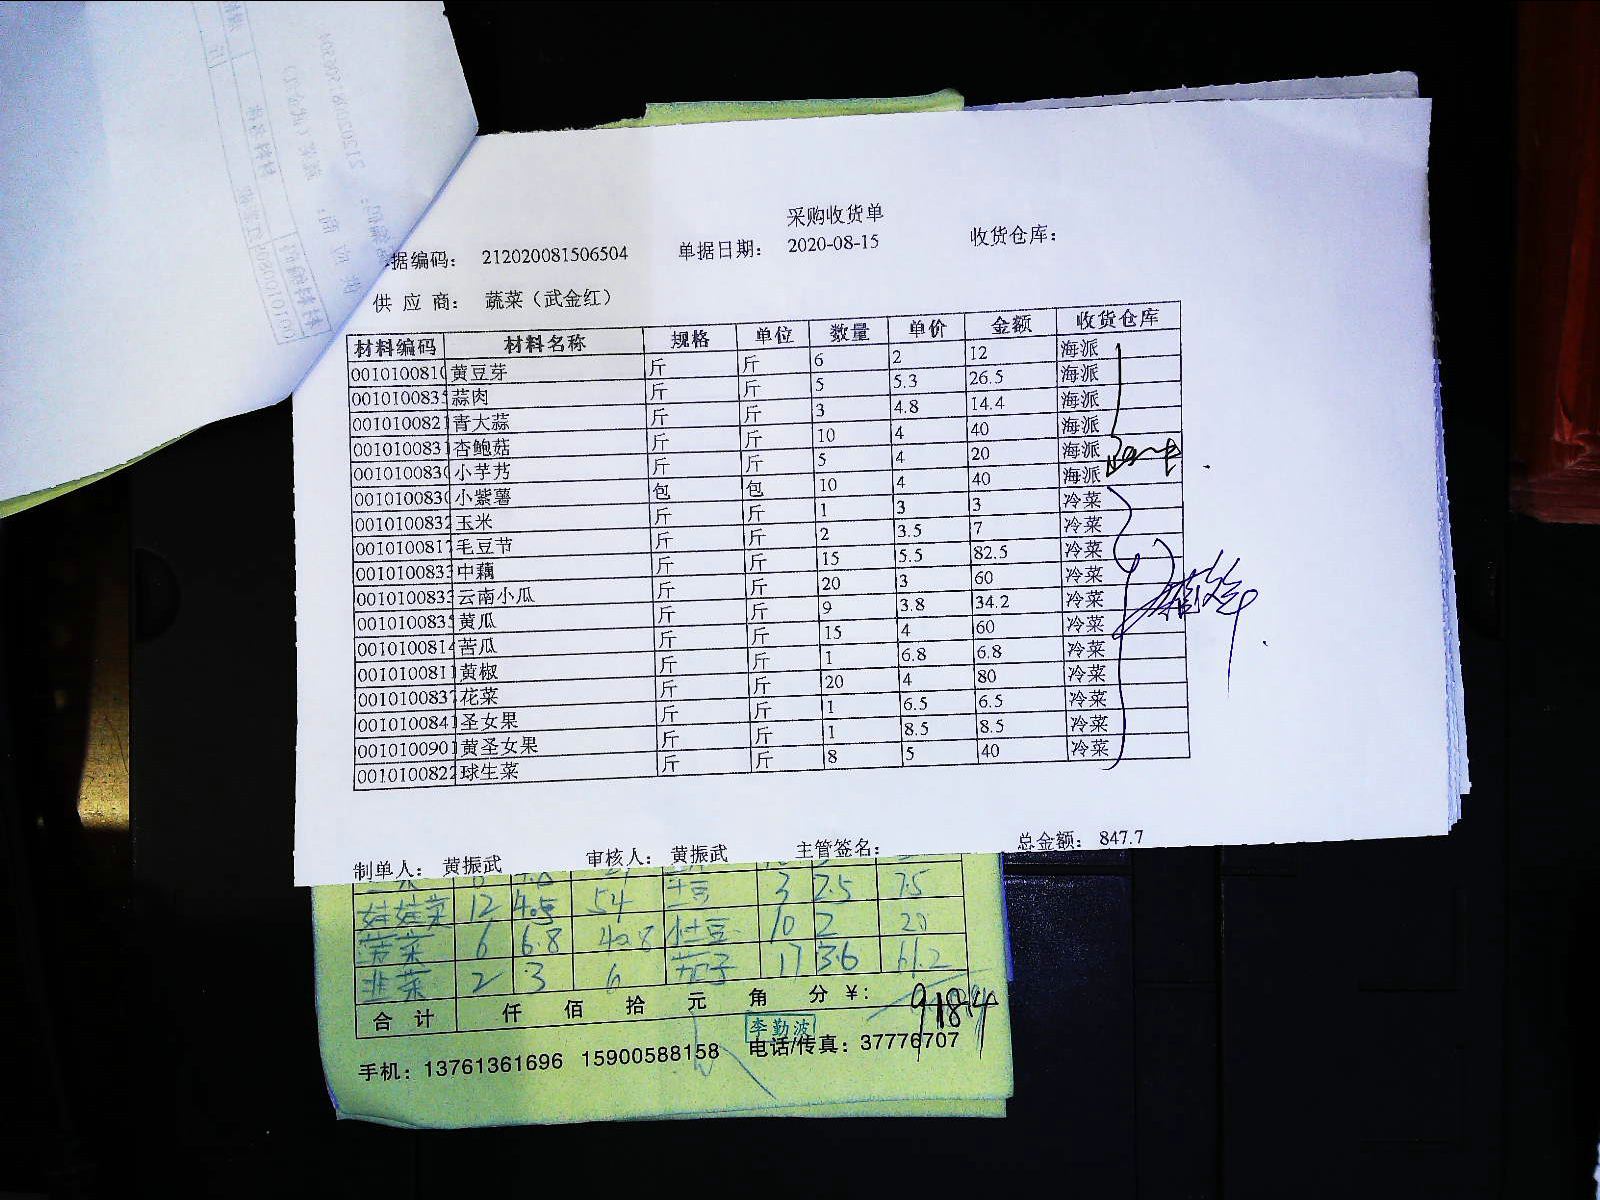 采购收货单
据编码: 212020081506504 单据日期: 2020-08-15 收货仓库:
供 应 商: 蔬菜（武金红）
材料编码 材料名称 规格 单位 数量 单价 金额 收货仓库
001010081 黄豆芽 斤 斤 6 2 12 海派
001010083 蒜肉 斤 斤 5 5.3 26.5 海派
001010082 青大蒜 斤 斤 3 4.8 14.4 海派
001010083 杏鲍菇 斤 斤 10 4 40 海派
001010083 小芋艿 斤 斤 5 4 20 海派
001010083 小紫薯 包 包 10 4 40 海派
001010083 玉米 斤 斤 1 3 3 冷菜
001010081 毛豆节 斤 斤 2 3.5 7 冷菜
001010083 中藕 斤 斤 15 5.5 82.5 冷菜
001010083 云南小瓜 斤 斤 20 3 60 冷菜
001010083 黄瓜 斤 斤 9 3.8 34.2 冷菜
001010081 苦瓜 斤 斤 15 4 60 冷菜
001010081 黄椒 斤 斤 1 6.8 6.8 冷菜
001010083 花菜 斤 斤 20 4 80 冷菜
001010084 圣女果 斤 斤 1 6.5 6.5 冷菜
001010090 黄圣女果 斤 斤 1 8.5 8.5 冷菜
001010082 球生菜 斤 斤 8 5 40 冷菜
制单人: 黄振武 审核人: 黄振武 主管签名: 总金额: 847.7
娃娃菜 12 4.5 54 土豆 3 2.5 7.5
6 6.8 40.8 小土豆 10 2 20
韭菜 2 3 6 茄子 17 3.6 61.2
合 计 仟 佰 拾 元 角 分 ¥: 918.4
李勤波
手机: 13761361696 15900588158 电话/传真: 37776707